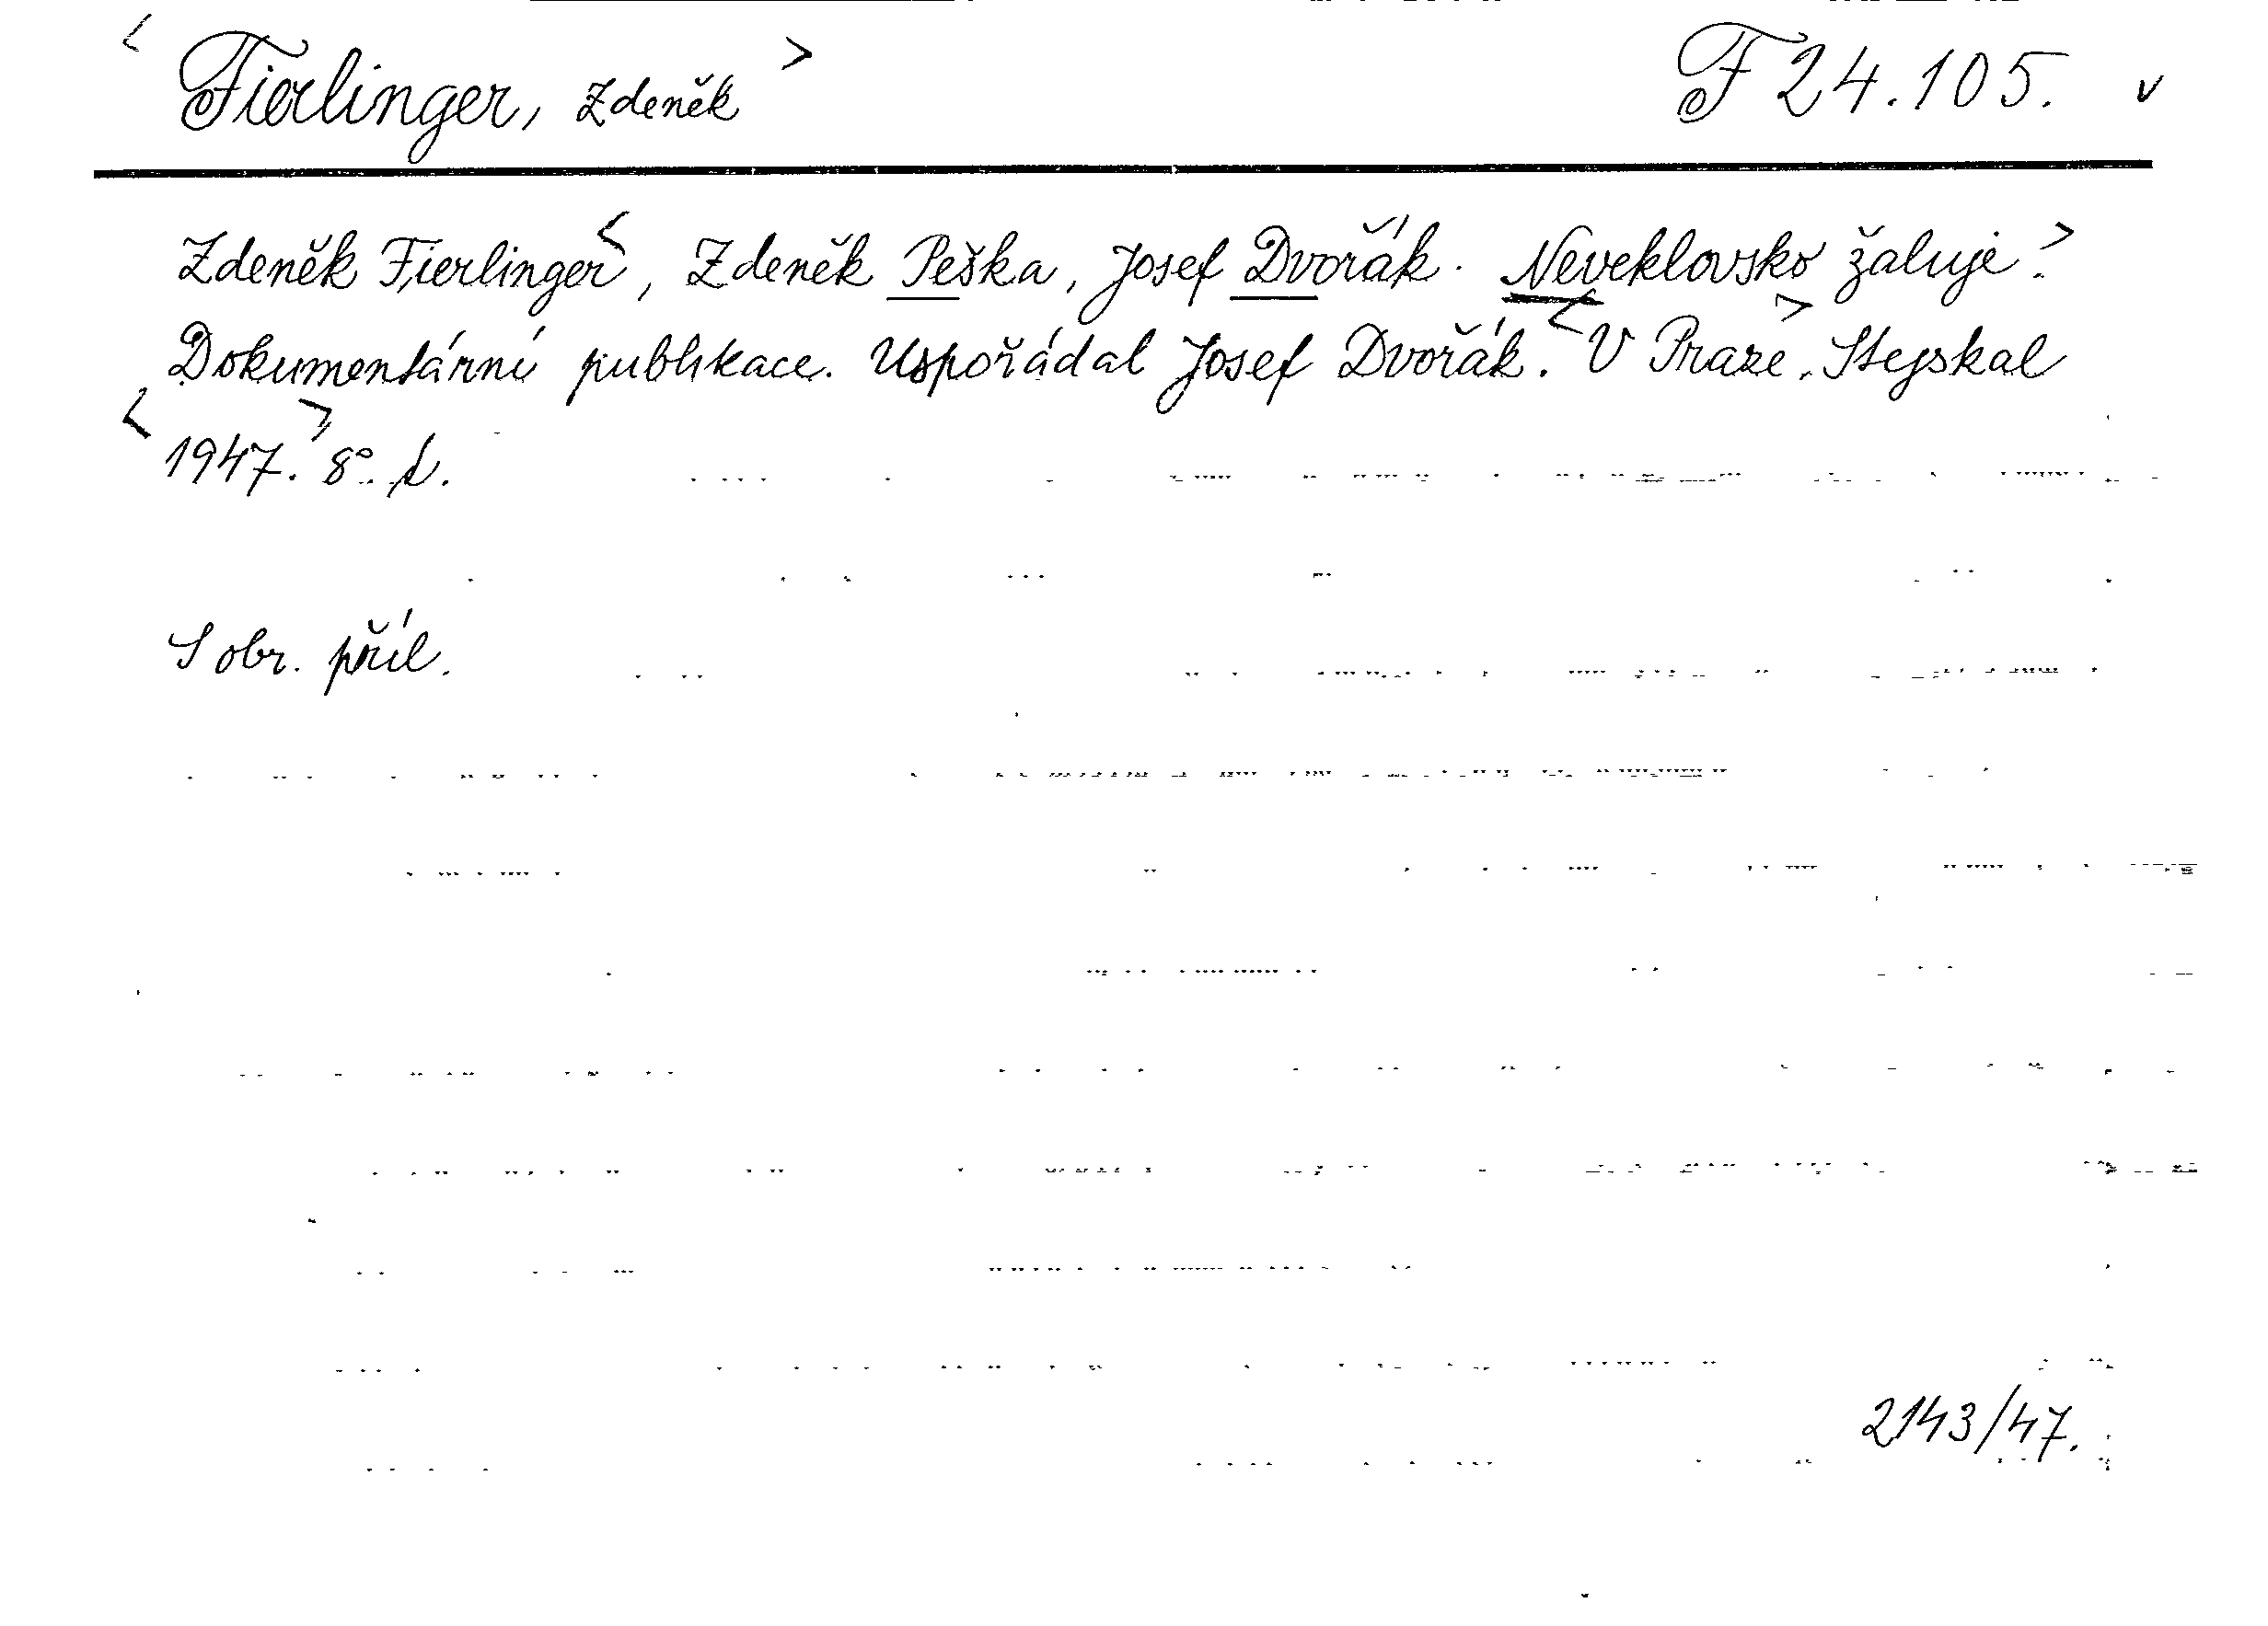 < Fierlinger, Zdeněk > F 24.105. v
Zdeněk Fierlinger<, Zdeněk Peška, Josef Dvořák. Neveklovsko žaluje.>
Dokumentární publikace. Uspořádal Josef Dvořák. <V Praze>, Stejskal
<1947.> 8°.
S obr. příl.
2143/47.